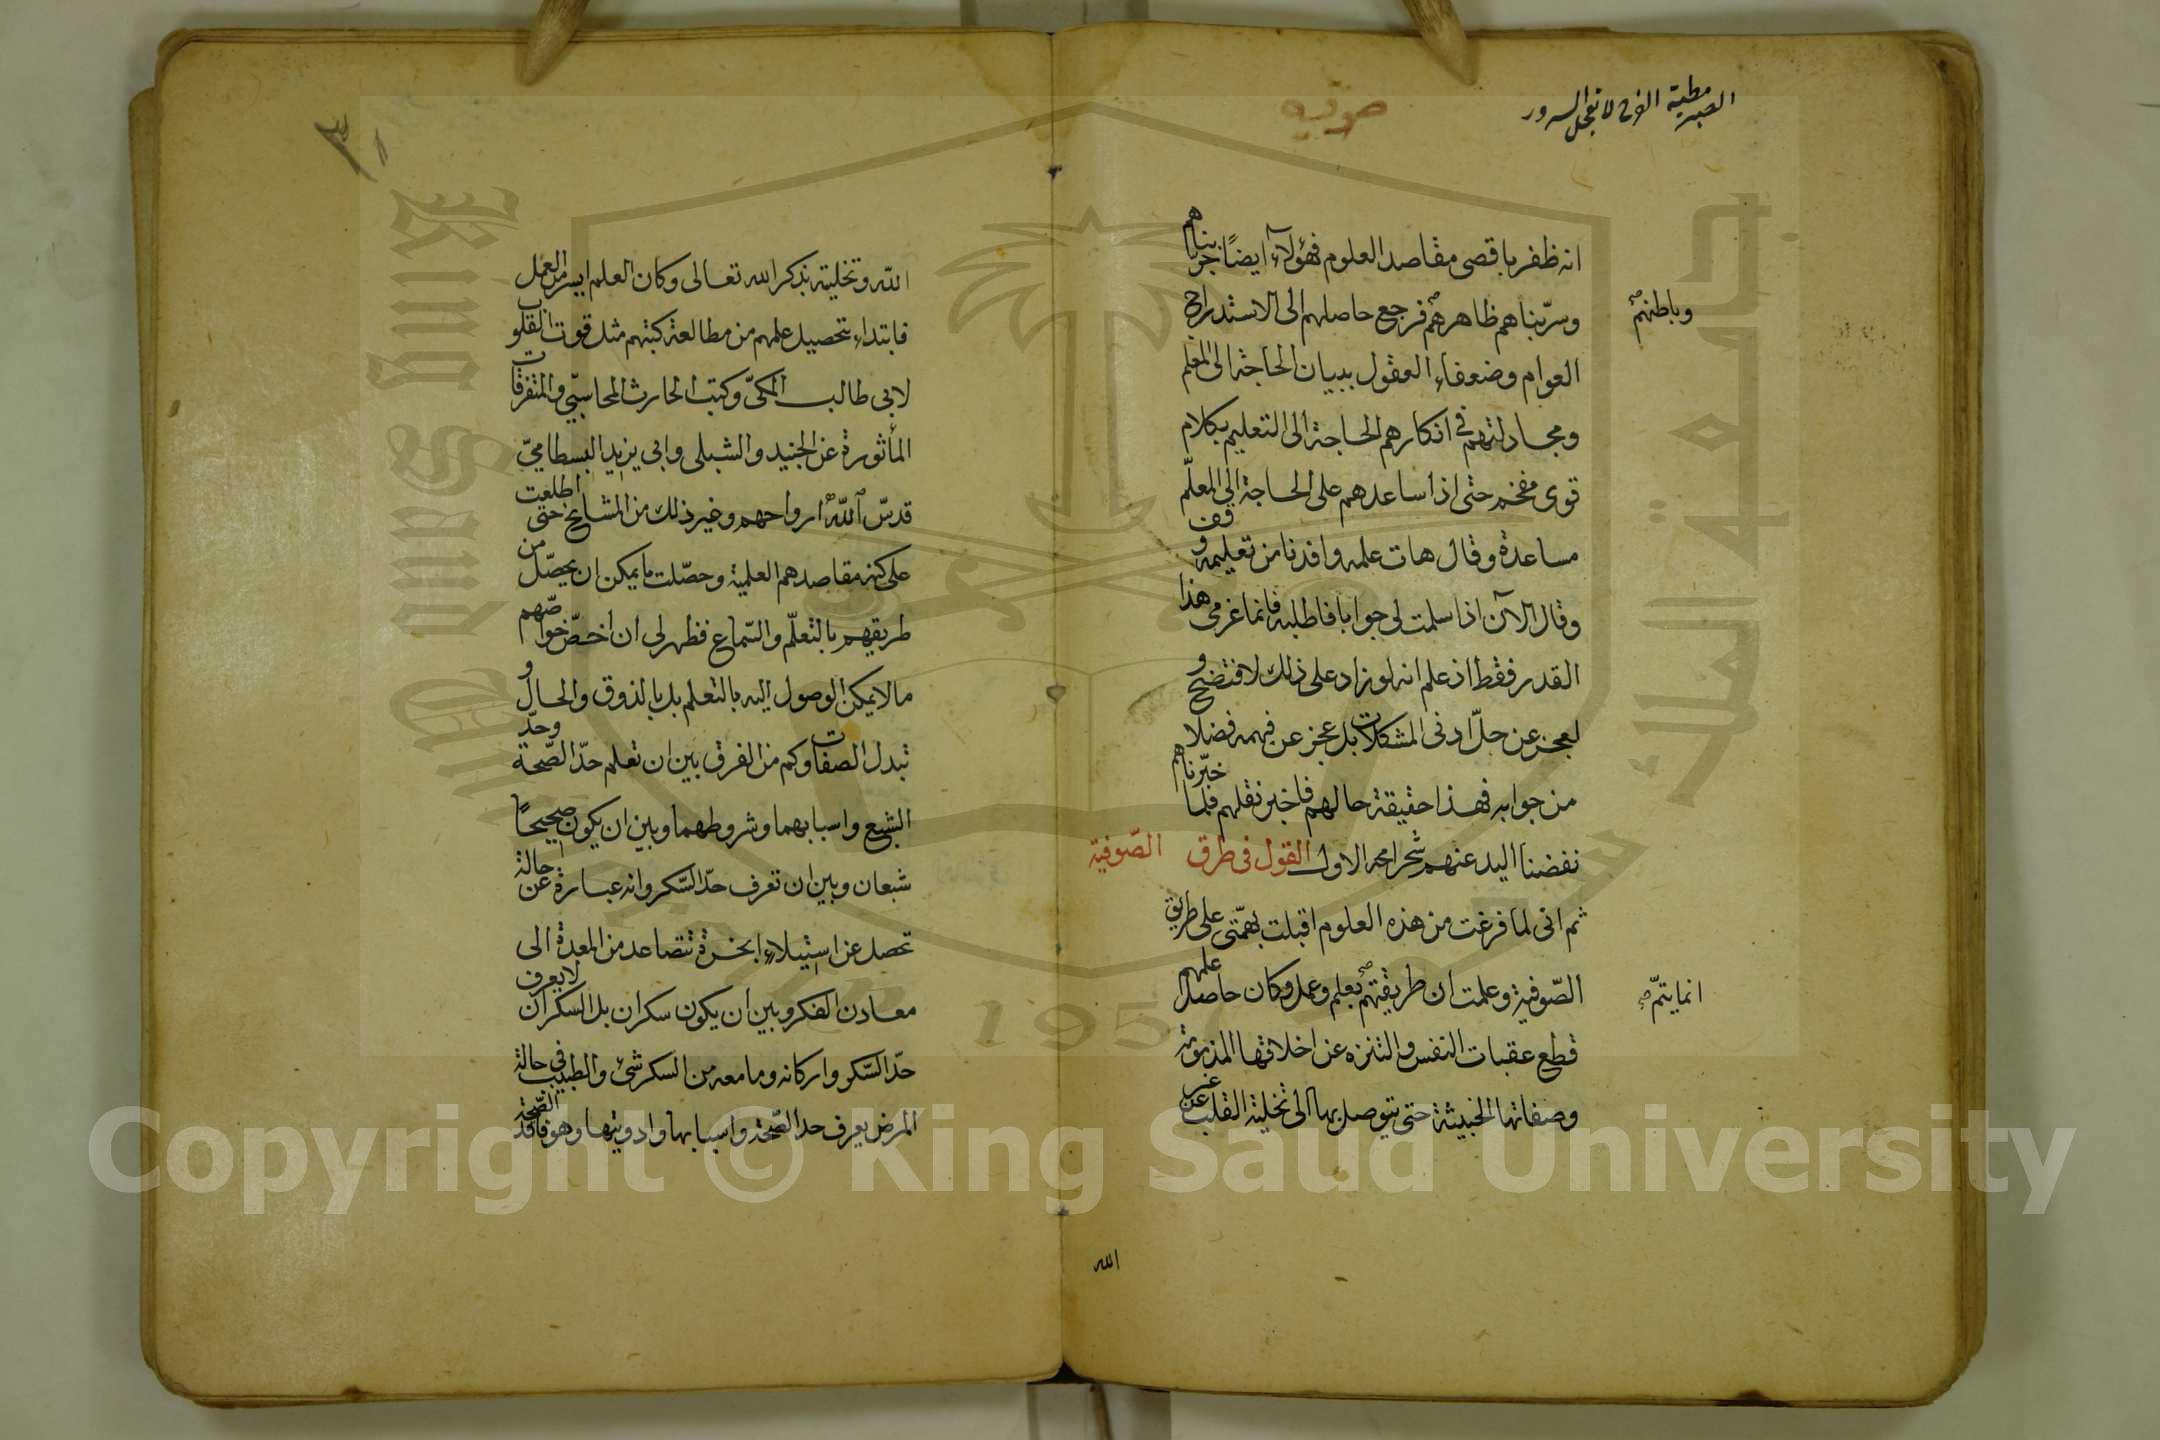 الصبر مطية الفرج لا تعجل السرور
صوفيه
انه ظفر باقصى مقاصد العلوم فهؤلاء ايضًا جربناهم
وسرّبناهم ظاهرهم فرجع حاصلهم الى الاستدراج
وباطنهم صح
العوام وضعفاء العقول ببيان الحاجة الى المعلم
ومجادلتهم فى انكارهم الحاجة الى التعليم بكلام
قوى مفخم حتى اذا ساعدهم على الحاجة الى المعلّم
مساعدة وقال هات علمه وافدنا من تعليمه وقف
وقال الآن اذا سلمت لى جوابا فاطلبه فانما غرمى هذا
القدر فقط اذ علم انه لو زاد على ذلك لافتضح و
لعجز عن حلّ ادنى المشكلات بل عجز عن فهمه فضلا
من جوابه فهذا حقيقة حالهم فاخبر نقلهم فلما خبّرناهم
نفضنا اليد عنهم شحرامحه الاول القول فى طرق الصّوفية
ثم انى لما فرغت من هذه العلوم اقبلت بهمّتى على طريق
الصّوفية وعلمت ان طريقتهم بعلم وعمل وكان حاصل علمهم
انما يتمّ صح
قطع عقبات النفس والتنزه عن اخلاقها المذمومة
وصفاتها الخبيثة حتى يتوصل بها الى تخلية القلب عن غير
الله
الله وتخليته بذكر الله تعالى وكان العلم ايسر من العمل
فابتداء بتحصيل علمهم من مطالعة كتبهم مثل قوت القلوب
لابى طالب المكىّ وكتب الحارث المحاسبّى والمتفرقات
المأثورة عن الجنيد والشبلى وابى يزيد البسطامىّ
قدسّ الله ارواحهم وغير ذلك من المشايخ حتى اطلعت
على كنه مقاصدهم العلمية وحصّلت ما يمكن ان يحصّل من
طريقهم بالتعلّم والسّماع فظهر لى ان اخصّ خواصّهم
ما لا يمكن الوصول اليه بالتعلم بل بالذوق والحال و
تبدل الصفات وكم من الفرق بين ان تعلم حدّ الصّحة وحدّ
الشبع واسبابهما وشروطهما وبين ان يكون صحيحًا
شبعان وبين ان تعرف حدّ السّكر وانه عبارة عن حالة
تحصل عن استيلاء ابخرة تتصاعد من المعدة الى
معادن الفكر وبين ان يكون سكران بل السكران لا يعرف
حدّ السّكر واركانه وما معه من السكر شئ والطبيب فى حالة
المرض يعرف حد الصّحة واسبابها وادويتها وهو فاقد الصّحة
Copyright © King Saud University
جامعة الملك سعود
King Saud University
195